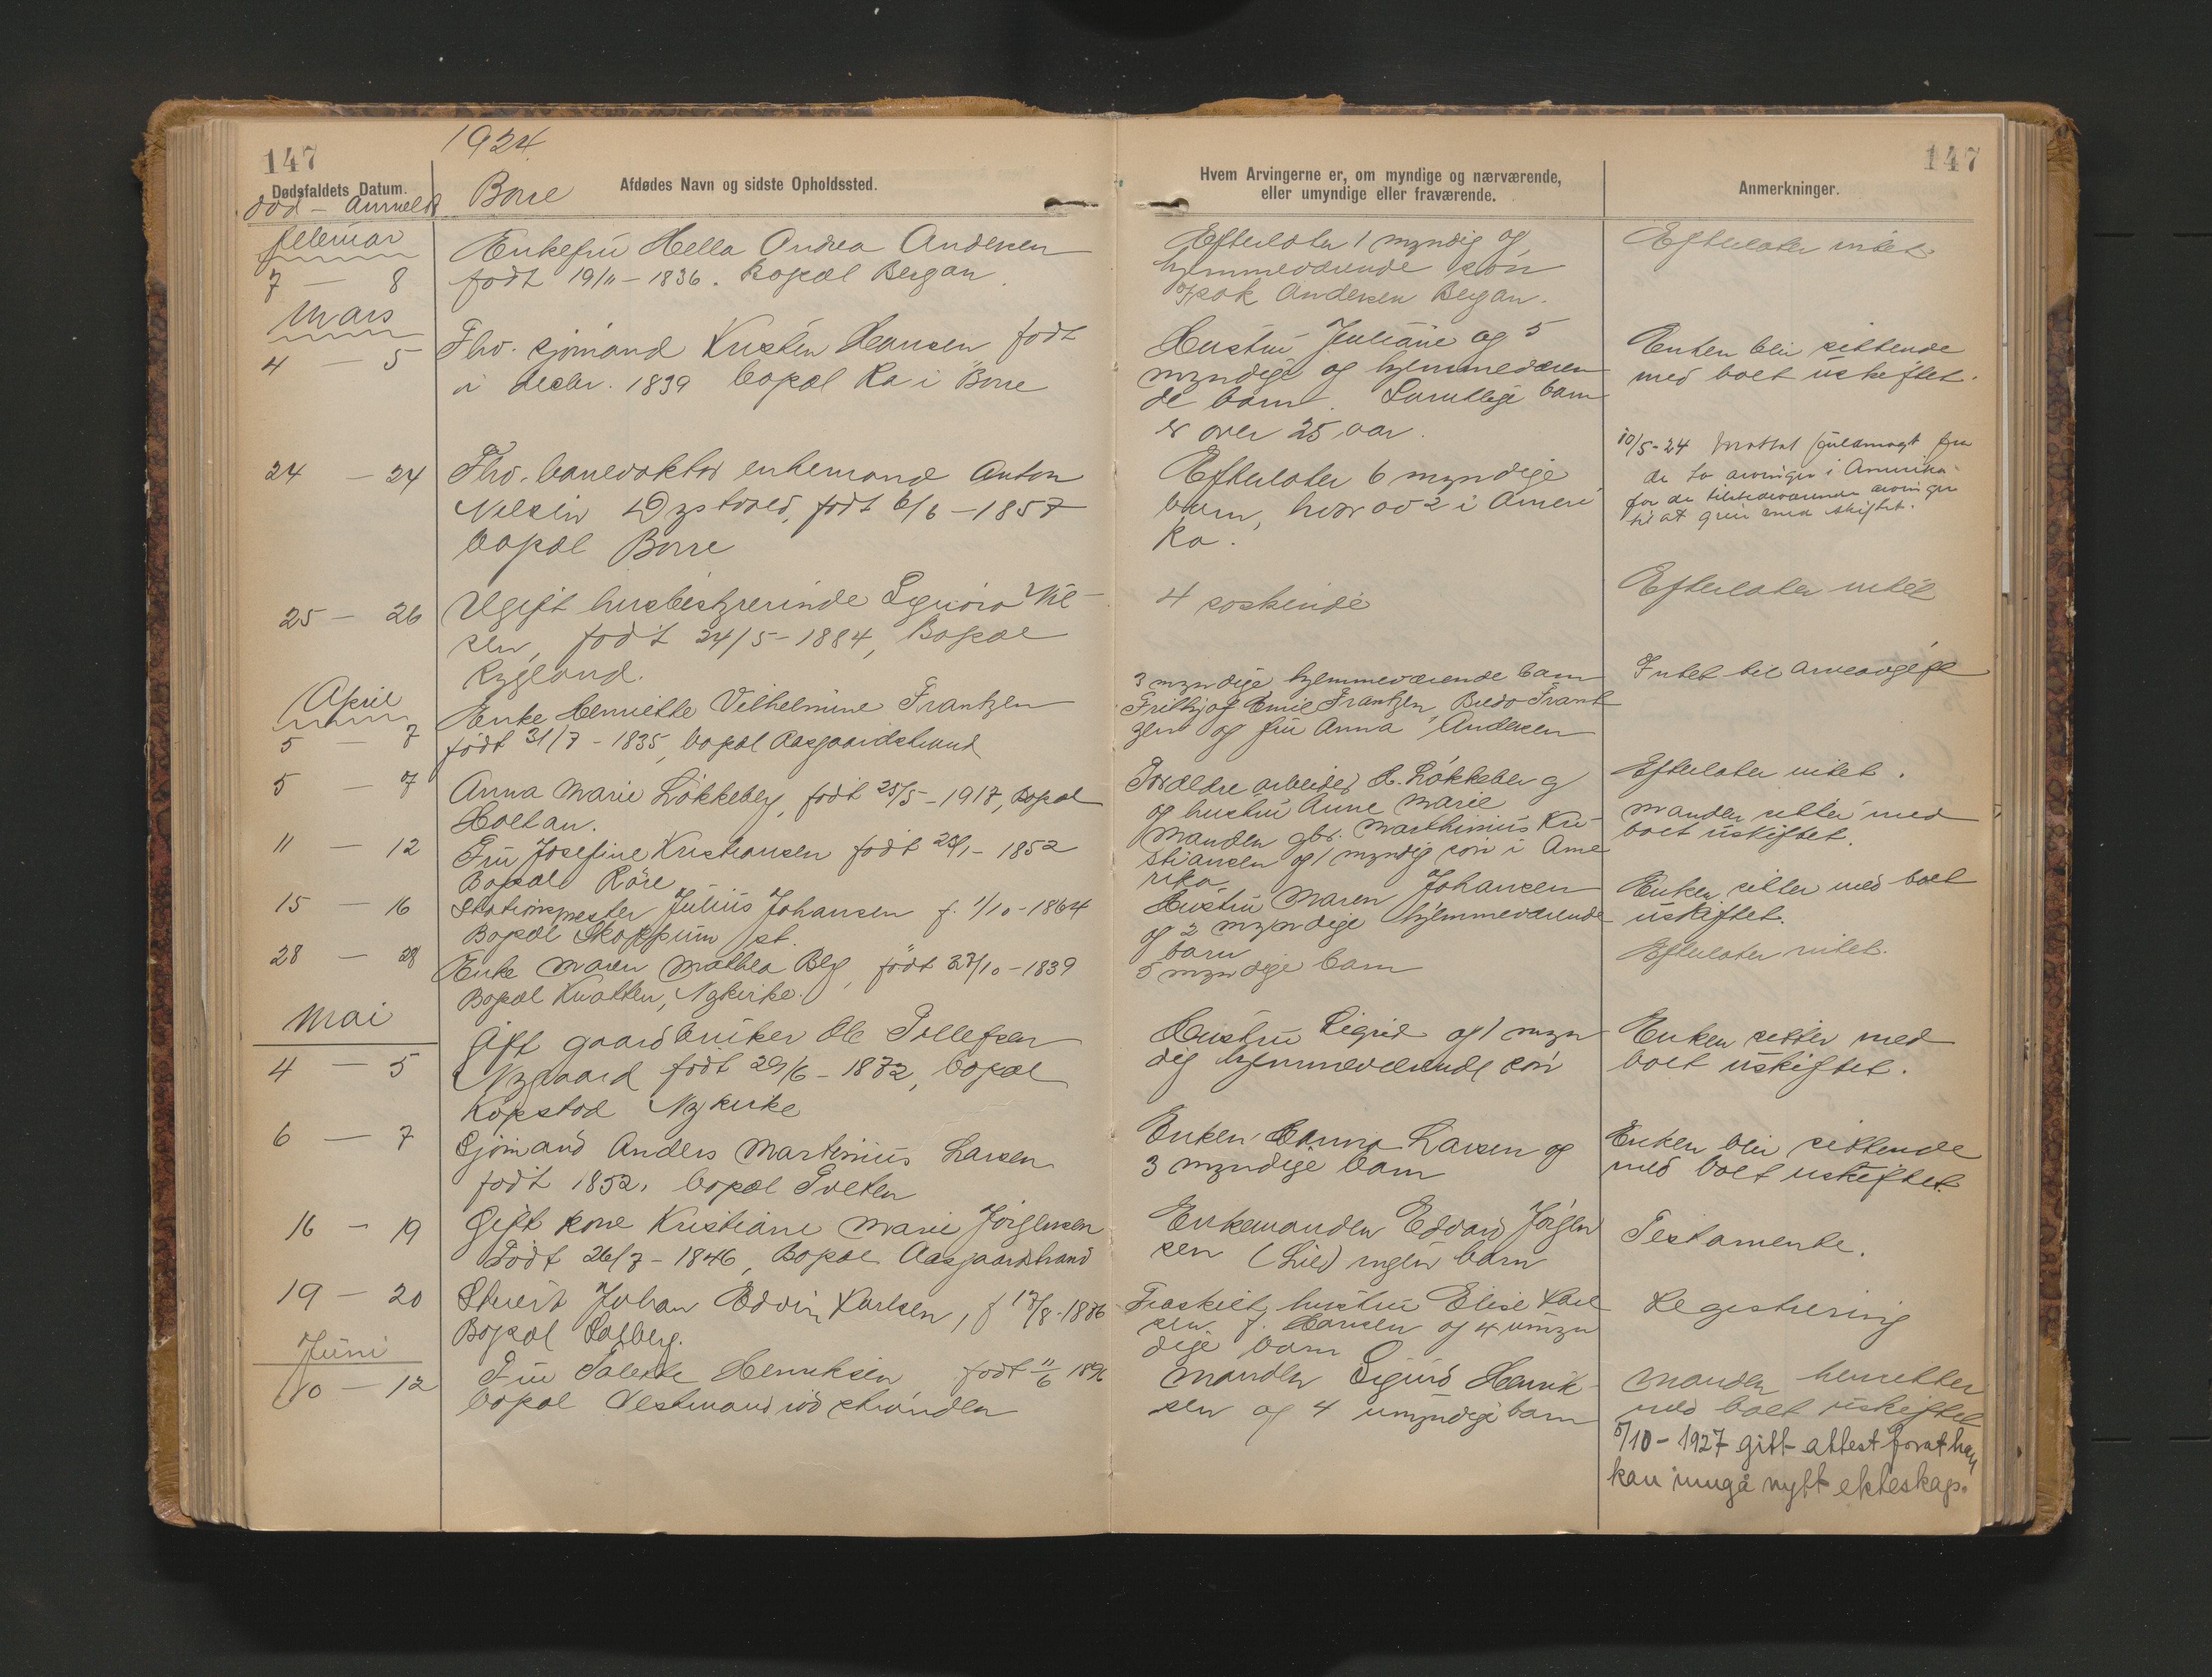 147
1924.
147
Dødsfaldets Datum.
død - anmeldt
Borre
Afdødes Navn og sidste Opholdssted.
Hvem Arvingerne er, om myndige og nærværende,
eller umyndige eller fraværende.
Anmerkninger.
februar
7 — 8
Enkefru Hella Andrea Andersen
født 19/11-1836. Bopæl Bergan.
Efterlater 1 myndig og
hjemmeværende søn
Isak Andersen Bergan.
Efterlater intet
Mars
4 — 5
Fhv. sjømand Kristen Hansen, født
i decbr. 1839 bopæl Ra i Borre
Hustru Juliane og 5
myndige og hjemmeværen
de barn. Samtlige barn
er over 25 aar.
Enken blir sittende
med boet uskiftet.
24 — 24
Fhv. banevokter enkemand Anton
Nilsen Dystved, født 6/6-1857
bopæl Borre
Efterlater 6 myndige
barn, hvor av 2 i Ameri
ka.
10/5-24 Mottat fuldmagt fra
de to arvinger i Amerika
for de tilstedeværende arvinger
til at greie med skiftet.
25 — 26
Ugift husbestyrerinde Signora Nil-
sen, født 24/5-1884, Bopæl
Rygland.
4 søskende
Efterlater intet
April
5 — 7
Enke Henriette Vilhelmine Frantzen
født 31/7-1835, bopæl Aasgaardstrand
3 myndige hjemmeværende barn
Frithjof Emil Frantzen, Bredo Frant
zen og fru Anna Andersen
Intet til arveavgift
5 — 7
Anna Marie Løkkeberg, født 25/5-1917, Bopæl
Holtan.
Forældre arbeider H. Løkkeberg
og hustru Anne Marie
Efterlater intet.
11 — 12
Fru Josefine Kristiansen født 29/1-1852
Bopæl Røre
Manden gbr. Marthinius Kri-
stiansen og 1 myndig søn i Ame
rika
Manden sitter med
boet uskiftet.
15 — 16
Stationsmester Julius Johansen f. 1/10-1864
Bopæl Skoppum st.
Hustru Maren Johansen
og 2 myndige hjemmeværende
barn
Enken sitter med boet
uskiftet.
28 — 28
Enke Maren Mathea Berg, født 27/10-1839
Bopæl Knatten, Nykirke.
5 myndige barn
Efterlater intet.
Mai
4 — 5
Gift gaardbruker Ole Tollefsen
Nygaard født 29/6-1872, bopæl
Kopstad Nykirke
Hustru Sigrid og 1 myn
dig hjemmeværende søn
Enken sitter med
boet uskiftet.
6 — 7
Sjømand Anders Martinius Larsen
født 1852. bopæl Tveten
Enken Hanna Larsen og
3 myndige barn
Enken blir sittende
med boet uskiftet.
16 — 19
Gift kone Kristiane Marie Jørgensen
Født 26/7-1846, Bopæl Aasgaardstrand
Enkemanden Edvard Jørgen
sen (Lie) ingen barn
Testamente.
19 — 20
Stuert Johan Edvin Karlsen, f 17/8-1876
Bopæl Solberg.
Fraskilt hustru Elise Karl
sen f. Hansen og 4 umyn
dige barn
Registrering
Juni
10 — 12
Fru Valente Henriksen født 11/6 1896
bopæl Vestmandrødstranden
Manden Sigurd Henrik-
sen og 4 umyndige barn
Manden hensitter
med boet uskiftet
5/10-1927 gitt attest forat han
kan inngå nytt ekteskap.